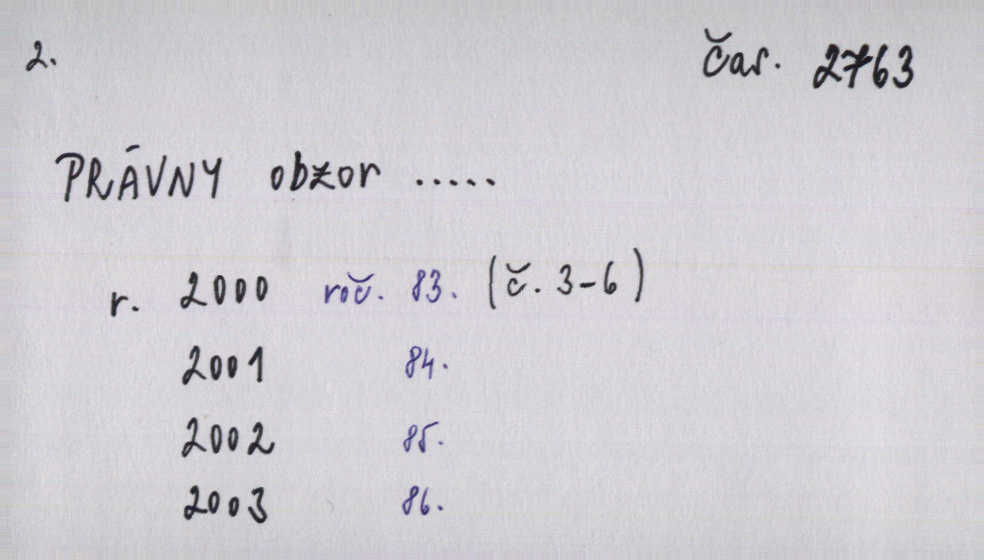 2. Čas. 2763
PRÁVNY obzor .....
r. 2000 roč. 83. (č. 3-6)
2001 84.
2002 85.
2003 86.